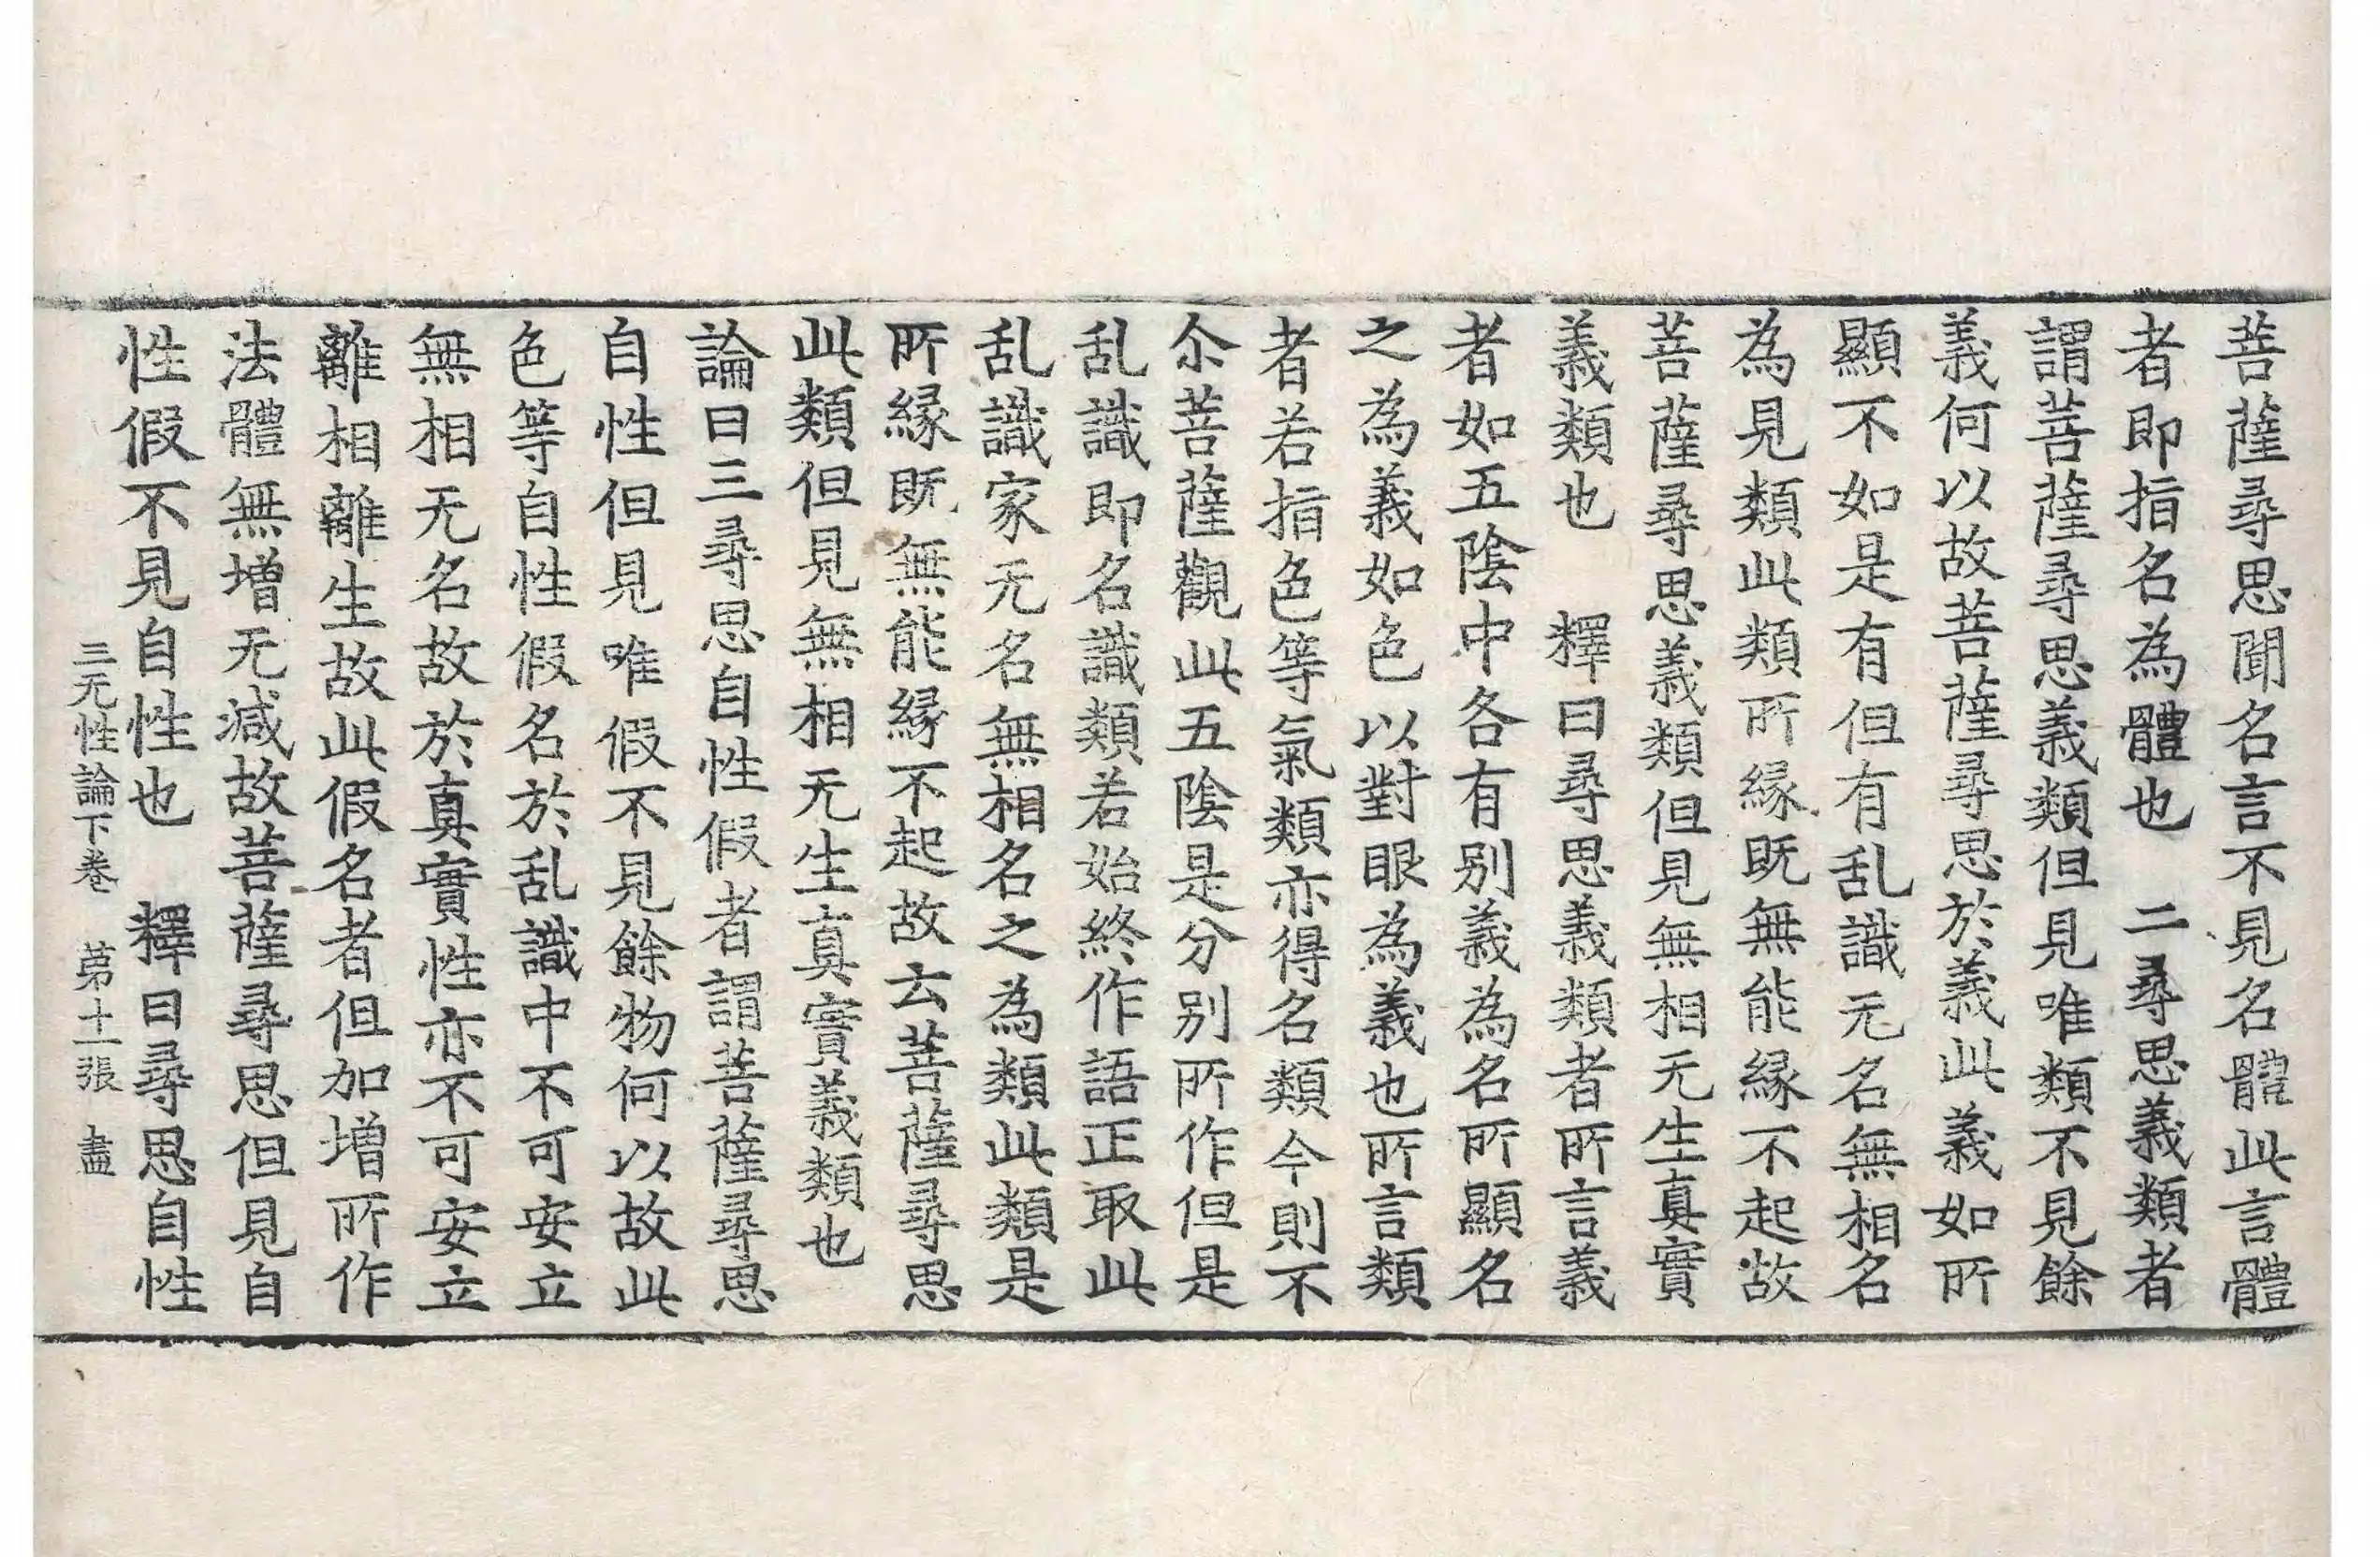 菩薩尋思聞名言不見名體此言體
者即指名為體也　二尋思義類者
謂菩薩尋思義類但見唯類不見餘
義何以故菩薩尋思於義此義如所
顯不如是有但有乱識无名無相名
為見類此類所緣既無能緣不起故
菩薩尋思義類但見無相无生真實
義類也　釋曰尋思義類者所言義
者如五陰中各有別義為名所顯名
之為義如色以對眼為義也所言類
者若指色等氣類亦得名類今則不
尒菩薩觀此五陰是分別所作但是
乱識即名識類若始終作語正取此
乱識家无名無相名之為類此類是
所緣既無能緣不起故云菩薩尋思
此類但見無相无生真實義類也
論曰三尋思自性假者謂菩薩尋思
自性但見唯假不見餘物何以故此
色等自性假名於乱識中不可安立
無相无名故於真實性亦不可安立
離相離生故此假名者但加增所作
法體無增无減故菩薩尋思但見自
性假不見自性也　釋曰尋思自性
三无性論下卷　苐十一張　盡